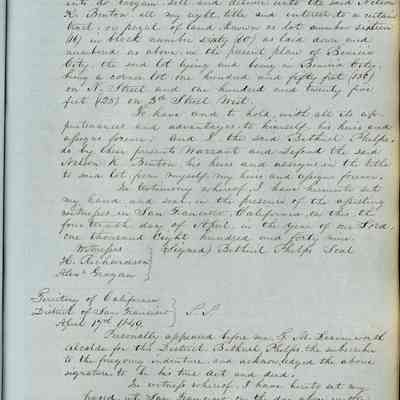 into do bargain, sell and deliver unto the said Nelson
K. Benton all my right title and interest to a certain
tract, or parcel of land, known as lot number sixteen
(16) in block number sixty (60) as laid down and
numbered as above in the present plan of Benicia
City, the said lot lying and being in Benicia City,
being a corner lot one hundred and fifty feet (150)
on N. Street and one hundred and twenty five
feet (125) on 5th Street West.
To have and to hold, with all its ap-
purtenances and advantages to himself his heirs and
assigns forever. And I the said Bethuel Phelps,
do by these presents Warrant and Defend the said
Nelson K. Benton his heirs and assigns in the title
to said lot from myself, my heirs and assigns forever.
In testimony whereof, I have hereunto set
my hand and seal, in the presence of the attesting
witnesses in San Francisco, California, on this the
fourteenth day of April, in the year of our Lord,
one thousand Eight hundred and forty nine.
Witnesses } (Signed) Bethuel Phelps Seal
H. Richardson
Alexr Grogan
Territory of California }
District of San Francisco } S.S.
April 17th 1849.
Personally appeared before me, T. M. Leavenworth
Alcalde for this District, Bethuel Phelps, the subscriber
to the foregoing indenture and acknowledged the above
signature to be his true Act and deed.
In witness whereof, I have hereto set my
hand at San Francisco on the day above